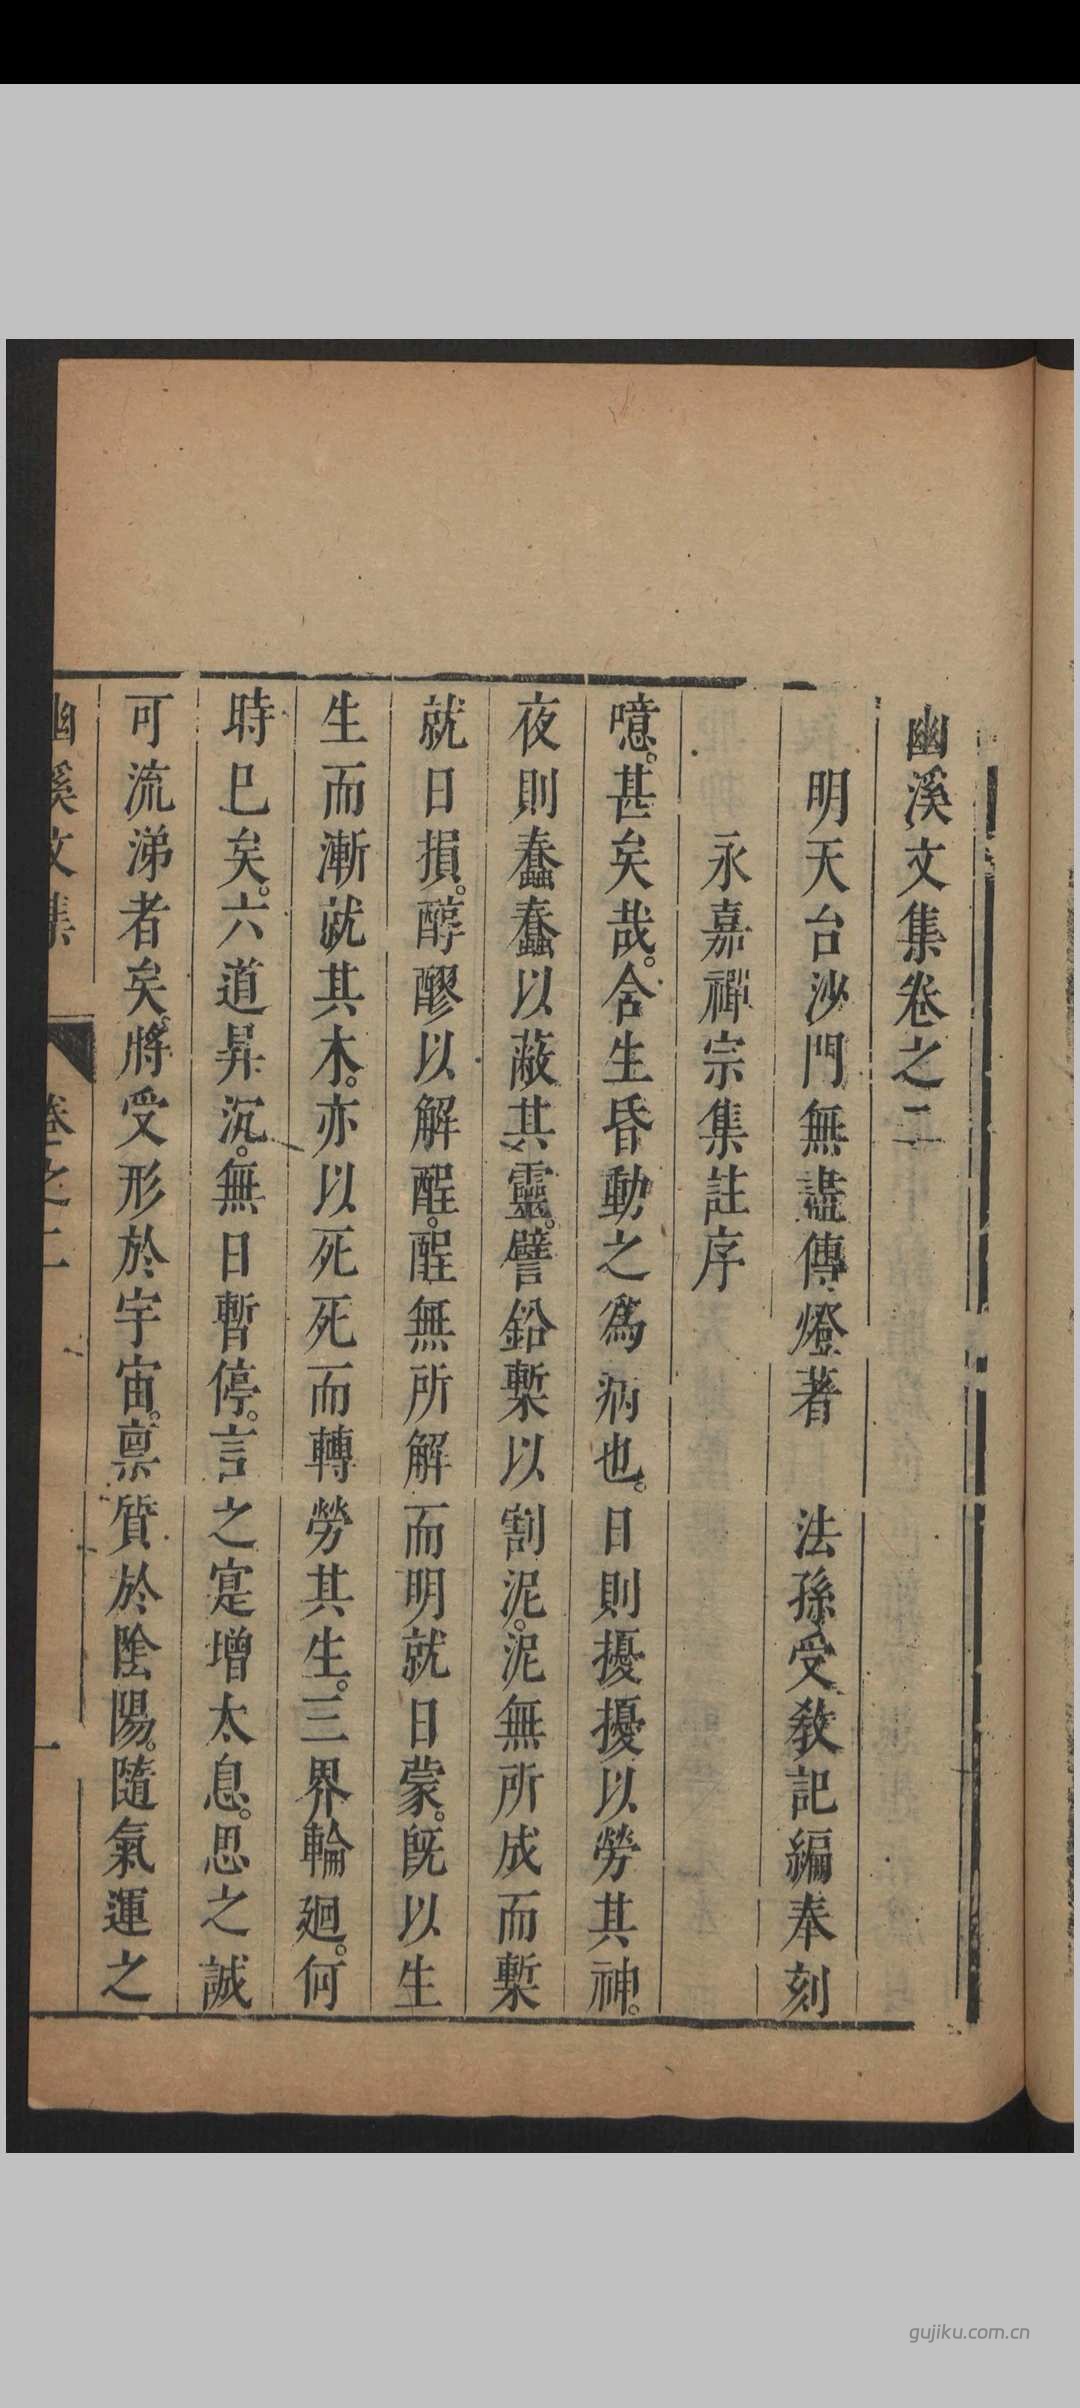 幽溪文集卷之二
明天台沙門無盡傳燈著　法孫受教記編奉刻
永嘉禪宗集註序
噫。甚矣哉。含生昏動之為病也。日則擾擾以勞其神。
夜則蠢蠢以蔽其靈。譬鉛槧以割泥。泥無所成而槧
就日損。醇醪以解酲。酲無所解而明就日蒙。既以生
生而漸就其木。亦以死死而轉勞其生。三界輪廻。何
時已矣。六道昇沉。無日暫停。言之寔增太息。思之誠
可流涕者矣。將受形於宇宙。禀質於陰陽。隨氣運之
幽溪文集　卷之二　一
gujiku.com.cn